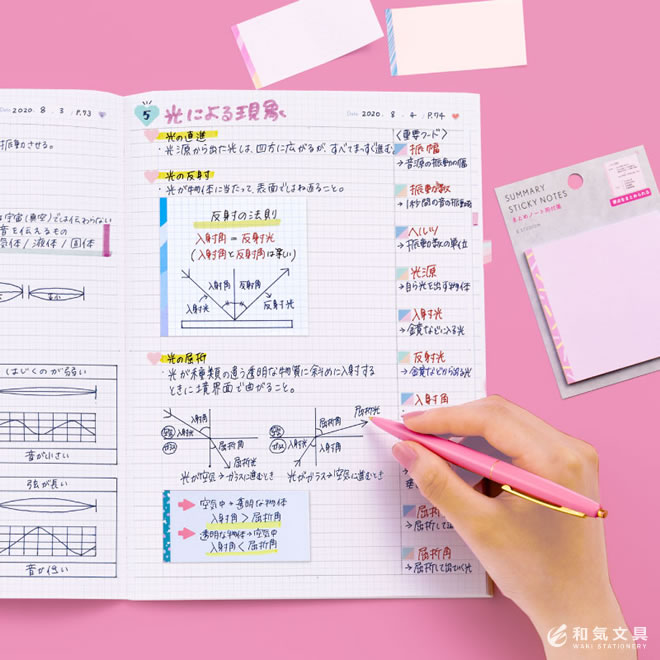 Date 2020 . 8 . 3 / P.93
振動させる。
は宇宙(真空)では伝わらない
音を伝えるもの
気体 / 液体 / 固体
はじくのが弱い
音が小さい
弦が長い
音が低い
5 光による現象
Date 2020 . 8 . 4 / P.94
光の直進
・光源から出た光は、四方に広がるが、すべてまっすぐ進む。
光の反射
・光が物体に当たって、表面ではね返ること。
反射の法則
入射角 = 反射光
(入射角と反射角は等しい)
入射角 反射角
入射光 反射光
光の屈折
・光が種類の違う透明な物質に斜めに入射する
ときに境界面で曲がること。
入射角
空気
ガラス
屈折角
屈折光
光が空気→ガラスに進むとき
屈折角 屈折光
空気
ガラス
入射光 入射角
光がガラス→空気に進むとき
空気中→透明な物体
入射角 > 屈折角
透明な物体→空気中
入射角 < 屈折角
〈重要ワード〉
振幅
→音源の振動の幅
振動数
→1秒間の音の振動数
ヘルツ
→振動の数の単位
光源
→自ら光を出す物体
入射光
→金属などに入る光
反射光
入射角
屈折光
屈折角
→屈折して出ていく光
SUMMARY
STICKY NOTES
まとめノート用付箋
和気文具
WAKI STATIONERY